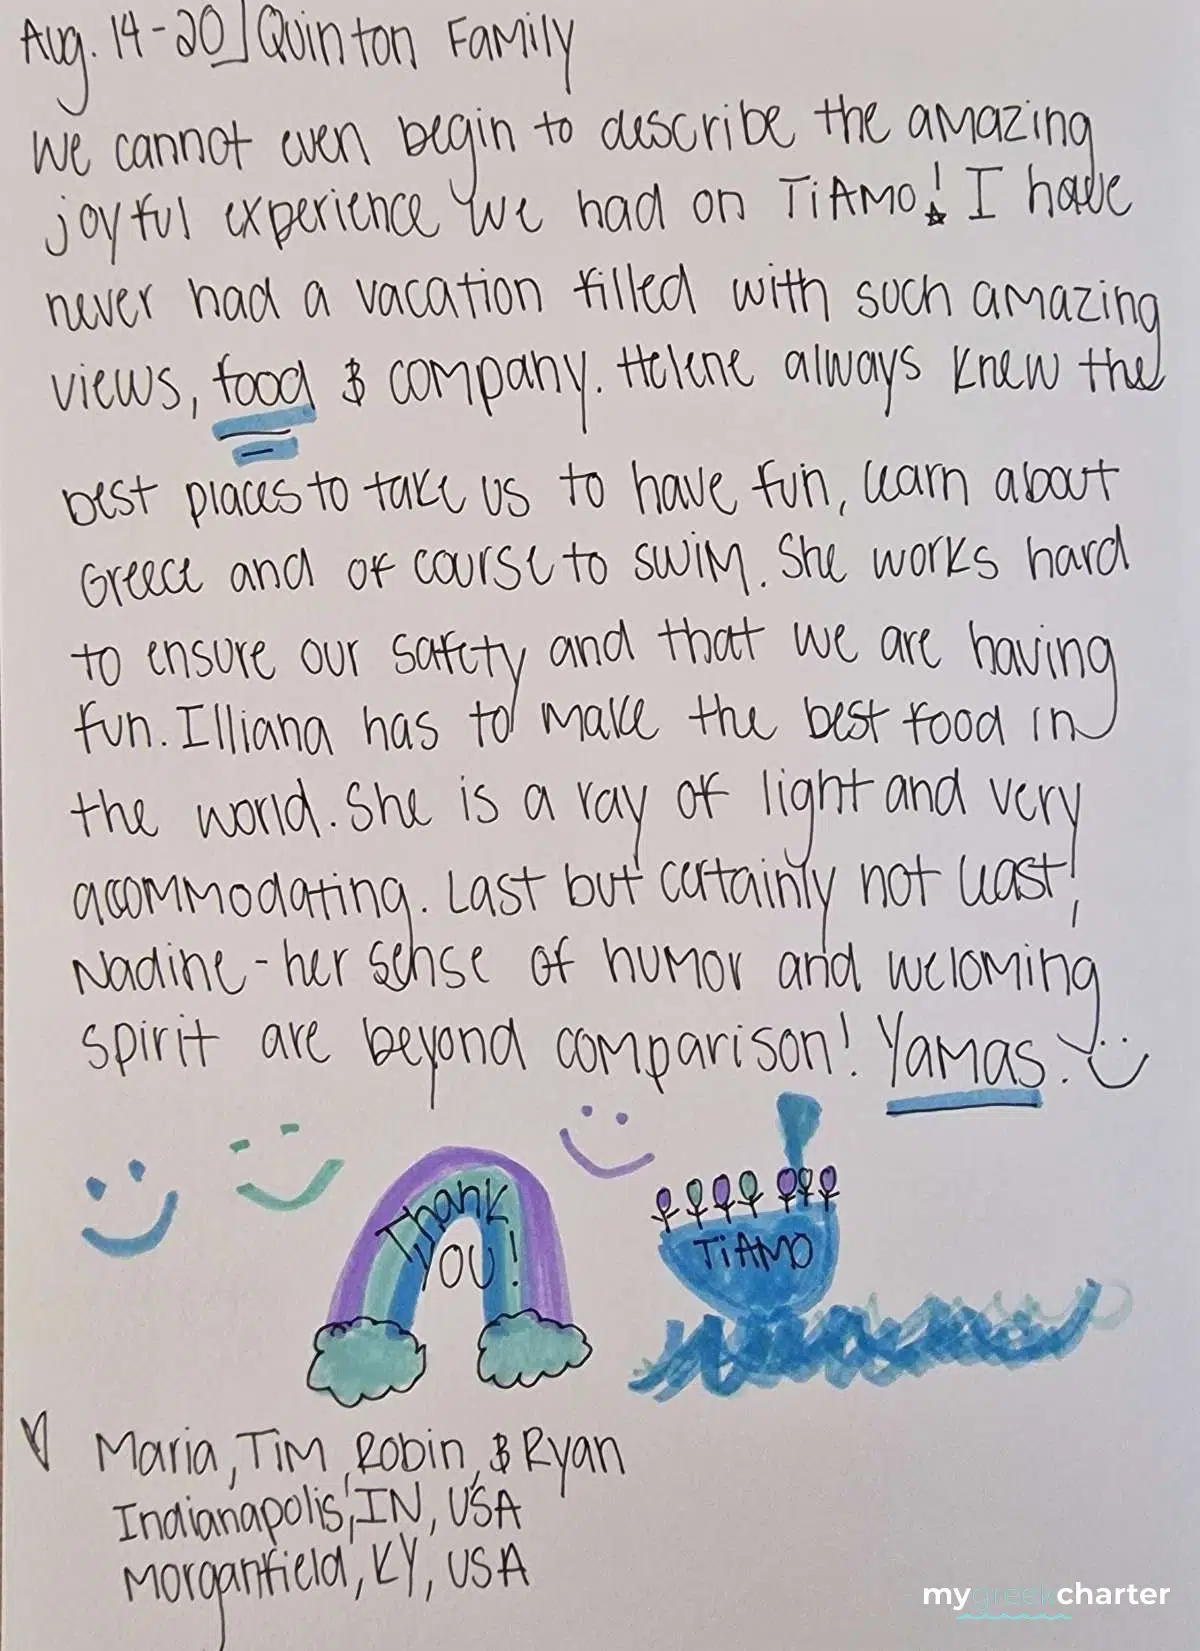 Aug. 14-20 | Quinton Family
We cannot even begin to describe the amazing
joyful experience we had on TiAMO! I have
never had a vacation filled with such amazing
views, food & company. Helene always knew the
best places to take us to have fun, learn about
Greece and of course to swim. She works hard
to ensure our safety and that we are having
fun. Illiana has to make the best food in
the world. She is a ray of light and very
accommodating. Last but certainly not least,
Nadine - her sense of humor and weloming
spirit are beyond comparison! Yamas.
Thank
You!
TiAMO
Maria, Tim, Robin, & Ryan
Indianapolis, IN, USA
Morganfield, KY, USA
mygreekcharter